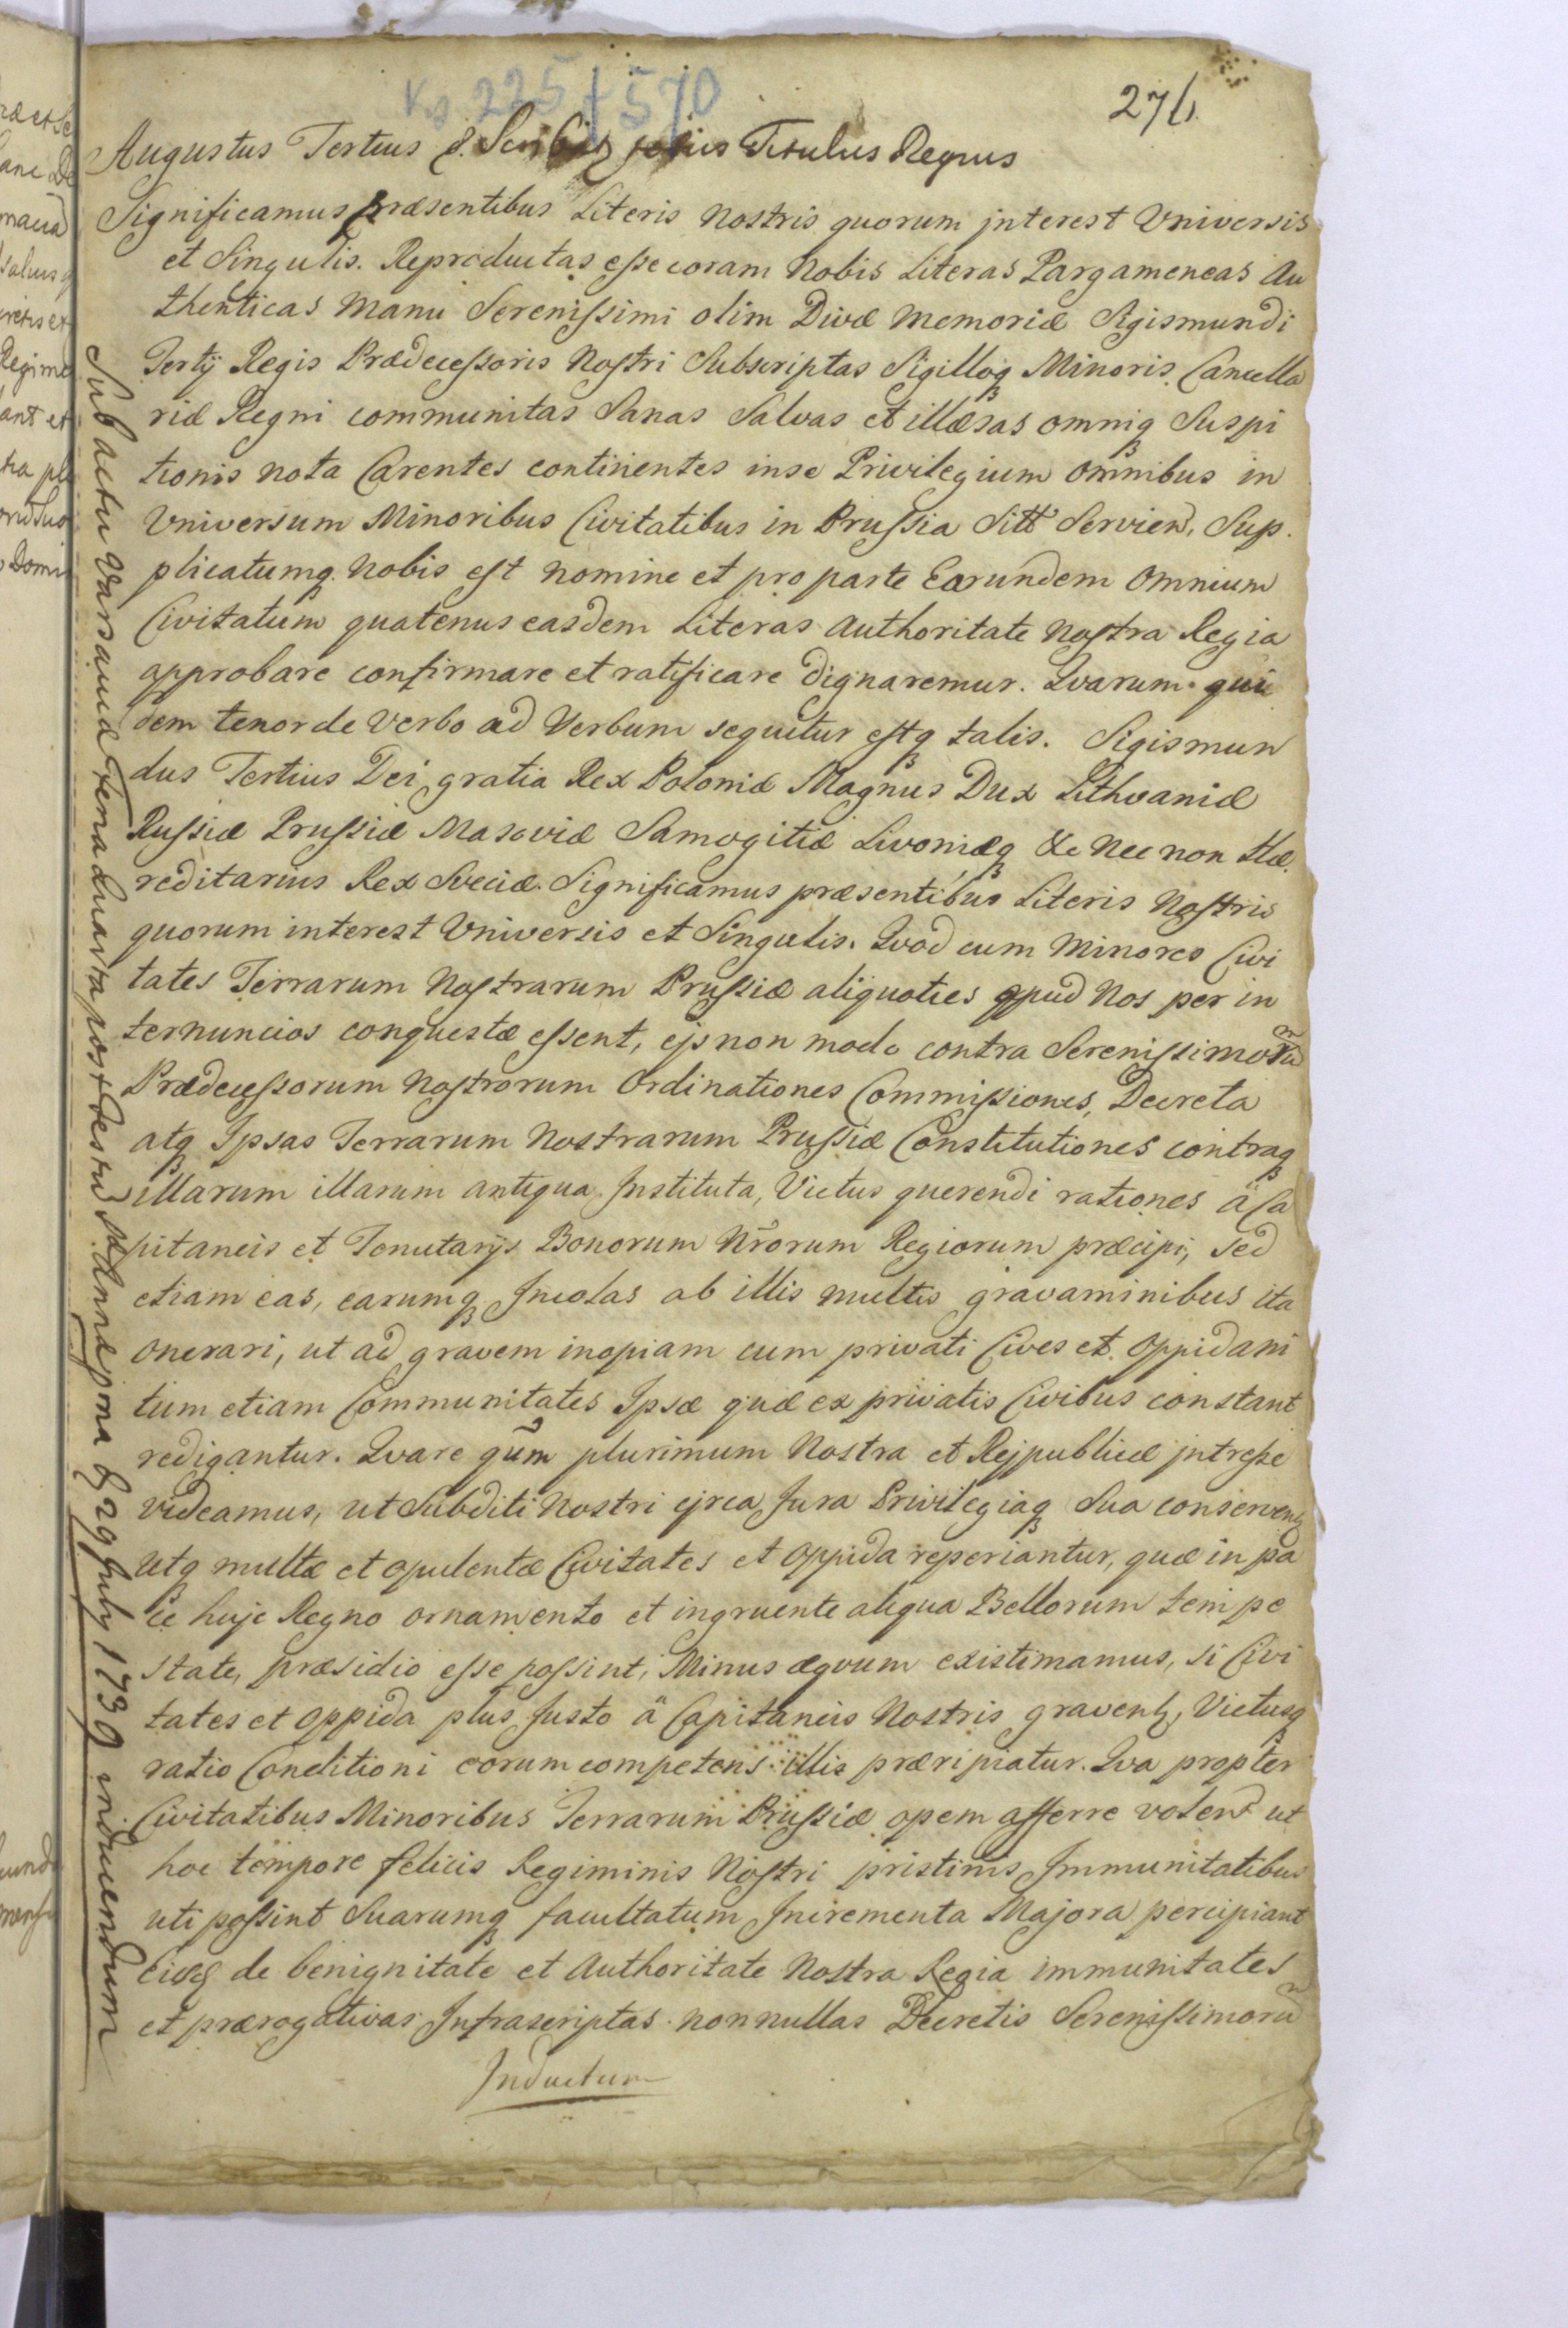 276
Augustus Tertius &. Scribatur totus Titulus Regius
Significamus præsentibus Literis Nostris quorum jnterest Vniversis
et Singulis. Reproductas esse coram Nobis Literas Pargameneas Au
thenticas Manu Serenissimi olim Divæ Memoriæ Sigismundi
Tertij Regis Prædecessoris Nostri Subscriptas Sigilloq Minoris Cancella
riæ Regni communitas Sanas Salvas et illæsas omniq Suspi
tionis nota Carentes continentes in se Privilegium omnibus in
Vniversum Minoribus Civitatibus in Prussia Sitt Servien. Sup.
plicatumq. Nobis est nomine et pro parte Earundem Omnium
Civitatum quatenus easdem Literas Authoritate Nostra Regia
approbare confirmare et ratificare dignaremur. Qvarum qui
dem tenor de Verbo ad Verbum sequitur estq talis. Sigismun
dus Tertius Dei gratia Rex Poloniæ Magnus Dux Lithvaniæ
Russiæ Prussiæ Masoviæ Samogitiæ Livoniæq &c Nec non Hæ
reditarius Rex Sveciæ. Significamus præsentibus Literis Nostris
quorum interest Vniversis et Singulis. Qvod cum Minores Civi
tates Terrarum Nostrarum Prussiæ aliquoties apud Nos per in
ternuncios conquestæ essent, ejs non modo contra Serenissimorum
Prædecessorum Nostrorum Ordinationes Commissiones, Decreta
atq Ipsas Terrarum Nostrarum Prussiæ Constitutiones contraq
illarum illarum antiqua Instituta, Victus querendi rationes â Ca
pitaneis et Tenutarijs Bonorum Nrorum Regiorum præcipi, sed
etiam eas, earumq Incolas ab illis multis gravaminibus ita
onerari, ut ad gravem inopiam cum privati Cives et Oppidani
tum etiam Communitates Ipsæ quæ ex privatis Civibus constant
redigantur. Qvare qum plurimum Nostra et Rejpublicæ jntresse
videamus, ut Subditi Nostri circa Jura Privilegiaq Sua conserventur
utq multæ et opulentæ Civitates et Oppida reperiantur, quæ in pa
ce hujc Regno ornamento et ingruente aliqua Bellorum tempe
state, præsidio esse possint, Minus æqvum existimamus, si Civi
tates et Oppida plus Justo â Capitaneis Nostris graventur, Victusq
ratio Conditioni eorum competens illis præripiatur. Qva propter
Civitatibus Minoribus Terrarum Prussiæ opem afferre volen ut
hoc tempore felicis Regiminis Nostri pristinis Immunitatibus
uti possint Suarumq facultatum Incrementa Majora percipiant
de benignitate et Authoritate Nostra Regia immunitates
et prærogativas Infrascriptas nonnullas Decretis Serenissimorum
Inductum
Sub actu Varsaviæ Feria quarta post Festum S. Annæ proxima d 29 July 1739 inducendum